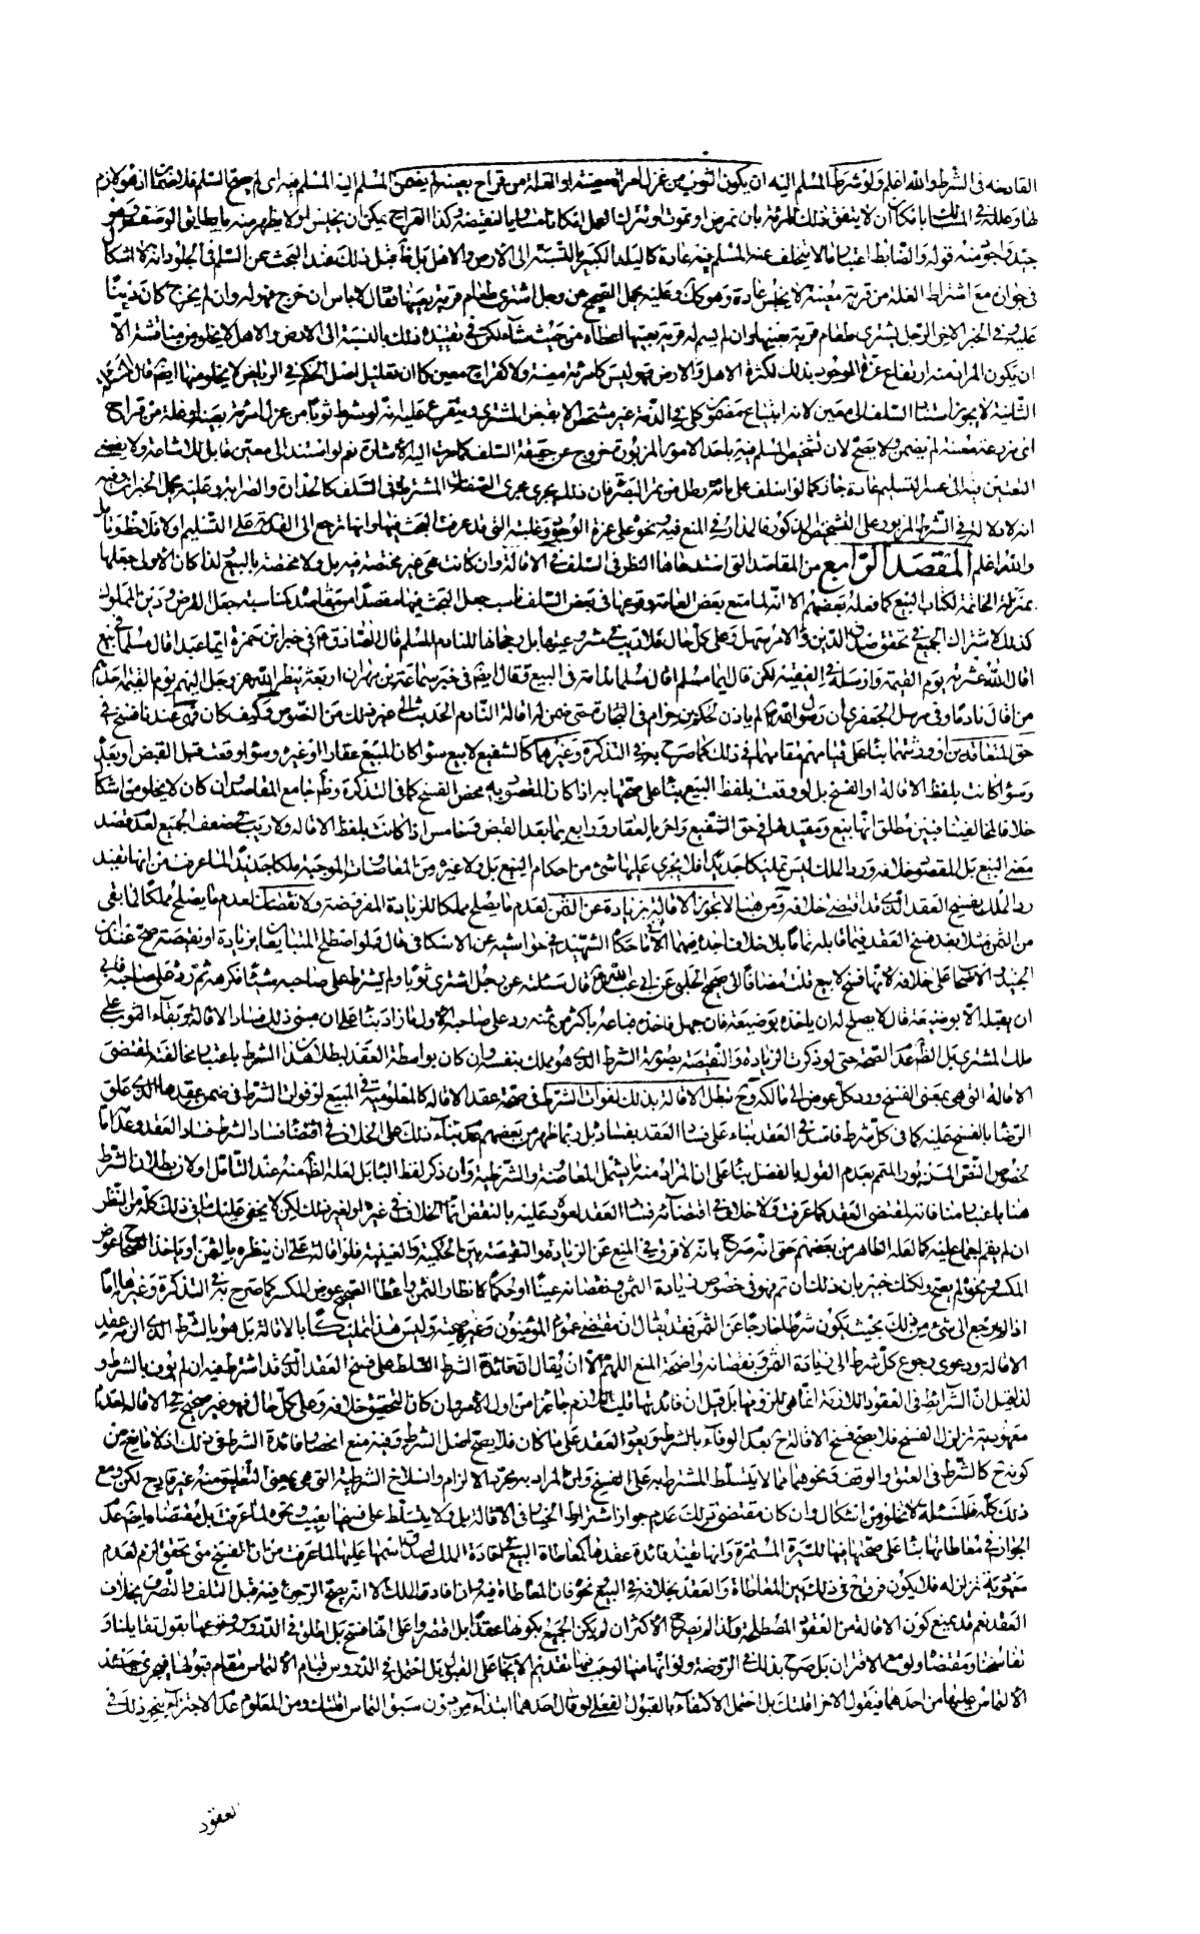 القادحه فى الشرط والله اعلم ولو شرط المسلم اليه ان يكون الثوب من غزل امرأة معينة او الغلة من قراح بعينه لم يضمن المسلم اليه المسلم فيه اى لم يصح السلم
لها وعلله فى بامكان ان لا يتفق ذلك للمرئة بان تمرض او تموت او تترك العمل وكذا القراح يمكن ان يخيس او لا يظهر منه ما يطابق الوصف وهو
جيد واجود منه قوله والضابط اعتبار ما لا يتخلف عنه المسلم فيه عادة كالبلد الكبير بالنسبة الى الارض والاهل بل قبل ذلك عند البحث عن السلم فى الجلود انه لا اشكال
فى جواز مع اشتراط الغلة من قرية معينة لا تخيس عادة وهو كك وعليه يحمل الصحيح عن رجل اشترى طعام قرية بعينها فقال لا باس ان خرج فهو له وان لم يخرج كان دينا
عليه وفى الخبر الاخر الرجل يشترى طعام قرية بعينها وان لم يسم له قرية بعينها اعطاه من حيث شاء لكن فى تقييده ذلك بالنسبة الى الارض والاهل لا يخلو من مناقشة الا
ان يكون المراد منه ارتفاع عزة الوجود بذلك لكثرة الاهل والارض فهو ليس كامرئة معينة ولا كقراح معين كما ان تعليل اصل الحكم فى الرياض لا يخلو منها ايضا قال
الثانية لا يجوز اسناد السلف الى معين لانه ابتياع مضمون كلى فى الذمة غير مشخص الا بقبض المشترى ويتفرع عليه انه لو شرط ثوبا من غزل امرئة بعينها او غلة من قراح
اى مزرعة معينة لم يضمن ولا يصح لان تشخيص المسلم فيه باحد الامور المزبورة خروج عن حقيقة السلف كما مرت اليه الاشارة نعم لو استند الى معين قابل للاشاعة ولا يفضى
التعيين فيه الى عسر التسليم عادة جاز كما لو اسلف على مائة رطل من تمر البصرة فان ذلك يجرى مجرى الصفات المشترطة فى السلف كالحدارة والصرابة وعليه يحمل الخبران وفيه
انه لا دلالة فى الشرط المزبور على التشخص المذكور فالمدار فى المنع فيه ونحوه على عزة الوجود وغلبته التى قد عرفت البحث فيها وانها ترجع الى القدرة على التسليم اولا فلاحظ وتامل
والله اعلم المقصد الرابع من المقاصد التى استدعاها النظر فى السلف فى الاقالة وان كانت هى غير مختصة فيه بل ولا مختصة بالبيع لذا كان الاولى جعلها
بمنزلة الخاتمة لكتاب البيع كما فعله بعضهم الا انه لما منع بعض العامة وقوعها فى بعض السلف ناسب جعل البحث فيها مقصدا من مقاصد كتابه جعل القرض ودين المملوك
كذلك لاشتراك الجميع فى تحقق صدق الدين والامر سهل وعلى كل حال فلا ريب فى مشروعيتها بل رجحانها للنادم المسلم قال الصادق ع فى خبر ابن حمزة ايما عبد اقال مسلما فى بيع
اقال الله عثرته يوم القيمة وارسله فى الفقيه لكن قال ايما مسلم اقال مسلما ندامة فى البيع وقال ايضا فى خبر سماعة بن مهران اربعة ينظر الله عز وجل اليهم يوم القيمة احدهم
من اقال نادما وفى مرسل الجعفرى ان رسول الله ص لم ياذن لحكيم بن حزام فى التجارة حتى ضمن له اقالة النادم الحديث الى غير ذلك من النصوص وكيف كان فهى عندنا فسخ فى
حق المتعاقدين او ورثتهما بناء على قيامهم مقامهما فى ذلك كما صرح به فى التذكرة وغيرهما كالشفيع لا بيع سواء كان المبيع عقارا او غيره وسواء وقعت قبل القبض او بعده
وسواء كانت بلفظ الاقالة او الفسخ بل لو وقعت بلفظ البيع بناء على صحتها به اذا كان المقصود به محض الفسخ كما فى التذكرة وظاهر جامع المقاصد وان كان لا يخلو من اشكال
خلافا لمخالفينا فبين مطلق انها بيع ومقيد له فى حق الشفيع واخر بالعقار ورابع بما بعد القبض وخامس اذا كانت بلفظ الاقاله ولا ريب فى ضعف الجميع لعدم قصد
معنى البيع بل المقصود خلافه ورد الملك ليس تمليكا جديدا فلا يجرى عليها شئ من احكام البيع بل ولا غيره من المعاوضات الموجبة ملكا جديدا لما عرفت من انها تفيد
رد الملك بفسخ العقد الذى قد اقتضى خلافه ومن هنا لا يجوز الاقالة بزيادة عن الثمن لعدم ما يصلح مملكا للزيادة المفروضة ولا نقصان لعدم ما يصلح مملكا لما بقى
من الثمن مثلا بعد فسخ العقد فيما قابله تماما بلا خلاف اجده فيهما الا ما حكاه الشهيد فى حواشيه عن الاسكافى قال فلو اصطلح المتبايعان بزيادة او نقيصة صح عند ابن
الجنيد والاصحاب على خلافه لانها فسخ لا بيع قلت مضافا الى صحيح الحلبى عن ابى عبد الله ع قال سئلته عن رجل اشترى ثوبا ولم يشترط على صاحبه شيئا فكرهه ثم رده على صاحبه فابى
ان يقيله الا بوضيعة قال لا يصلح له ان ياخذه بوضيعة فان جهل فاخذه فباعه باكثر من ثمنه رد على صاحبه الاول ما زاد بناء على ان مبنى ذلك فساد الاقالة وبقاء الثوب على
ملك المشترى بل الظاهر عدم الصحة حتى لو ذكرت الزيادة والنقيصة بصورة الشرط الذى هو مملك بنفسه وان كان بواسطة العقد لبطلان هذا الشرط باعتبار مخالفته لمقتضى
الاقالة التى هى بمعنى الفسخ ورد كل عوض الى مالكه وح تبطل الاقالة بذلك لفوات الشرط فى صحة عقد الاقالة كالمعلومية فى المبيع لو فوات الشرط فى ضمن عقدها الذى علق
الرضا بالفسخ عليه كما فى كل شرط فاسد فى العقد بناء على فساد العقد بفساده بل ربما ظهر من بعضهم عدم بناء ذلك على الخلاف فى اقتضاء فساد الشرط فساد العقد وعدمه اما
لخصوص النص المزبور المتمم بعدم القول بالفصل بناء على ان المراد منه ما يشمل المعاوضة والشرطية وان ذكر لفظ الباء بل لعله الظاهر منه عند التامل او لان بطلان الشرط
هنا باعتبار منافاته لمقتضى العقد كما عرفت ولا خلاف فى اقتضائه فساد العقد لعوده عليه بالنقض انما الخلاف فى غيره او لغير ذلك لكن لا يخفى عليك ما فى ذلك كله من النظر
ان لم يقم اجماع عليه كما لعله الظاهر من بعضهم حتى انه صرح بانه لا فرق فى المنع عن الزيادة والنقيصة بين الحكمية والعينية فلو اقاله على ان ينظره بالثمن او ياخذ الصحاح عوض
المكسرة ونحوه لم يصح ولكنك خبير بان ذلك ان تم فهو فى خصوص زيادة الثمن ونقصانه عينا او حكما كانظار الثمن واعطاء الصحيح عوض المكسر كما صرح به فى التذكرة وغيرها اما
اذا لم يرجع الى شئ من ذلك بحيث يكون شرطا خارجا عن الثمن فقد يقال ان مقتضى عموم المؤمنون وغيره صحته وليس هذا تمليكا بالاقالة بل هو بالشرط الذى الزمه عقد
الاقالة ودعوى رجوع كل شرط الى زيادة الثمن ونقصانه واضحة المنع اللهم الا ان يقال ان فائدة الشرط التسلط على فسخ العقد الذى قد اشترط فيه ان لم يؤت بالشرط و
لذا قيل ان الشرايط فى العقود اللازمة انما هى للزومها بل قيل ان فائدتها قلب اللازم جائزا من اول الامر وان كان التحقيق خلافه وعلى كل حال فهو غير صحيح فى الاقالة لعدم
معهودية تزلزل الفسخ فلا يصح فسخ الاقالة ح بعدم الوفاء بالشرط ويعود العقد على ما كان فلا يصح اصل الشرط وفيه منع انحصار فائدة الشرط فى ذلك اذ لا مانع من
كونه ح كالشرط فى العتق والوقف ونحوهما مما لا يتسلط المشترط به على الفسخ وان المراد به مجرد الالزام وانسلاخ الشرطية التى هى بمعنى التعليق منه غير قادح لكن ومع
ذلك كله فالمسئلة لا تخلو من اشكال وان كان مقتضى ذلك عدم جواز اشتراط الخيار فى الاقالة بل ولا يتسلط على فسخها بعيب ونحوه لما عرفت بل مقتضاه ايضا عدم
الجواز فى معاطاتها بناء على صحتها فيها للسيرة المستمرة وانها تفيد فائدة عقدها كمعاطاة البيع فى افادة الملك لصدق اسمها عليها لما عرفت من ان الفسخ متى تحقق لزم لعدم
معهودية تزلزله فلا يكون فرق ح فى ذلك بين المعاطاة والعقد بخلافه فى البيع ونحوه فان المعاطاة فيه وان افادت الملك الا انه يصح الرجوع فيه قبل التلف والتصرف بخلاف
العقد نعم قد يمنع كون الاقالة من العقود المصطلحة ولذا لم يصرح الاكثر ان لم يكن الجميع بكونها عقدا بل اقتصروا على انها فسخ بل اطلق فى الدروس وقوعها بقول تقايلنا و
تفاسخنا ومقتضاه ولو مع الاقتران بل صرح بذلك فى الروضة ولو انها منها لوجب فيها تقديم الايجاب على القبول بل احتمل فى الدروس قيام الالتماس مقام قبولها فيجزى حينئذ
الالتماس عليها من احدهما فيقول الاخر اقلتك بل احتمل الاكتفاء بالقبول الفعلى لو قال احدهما ابتداء من دون سبق التماس اقلتك ومن المعلوم عدم الاجتزاء بنحو ذلك فى
العقود